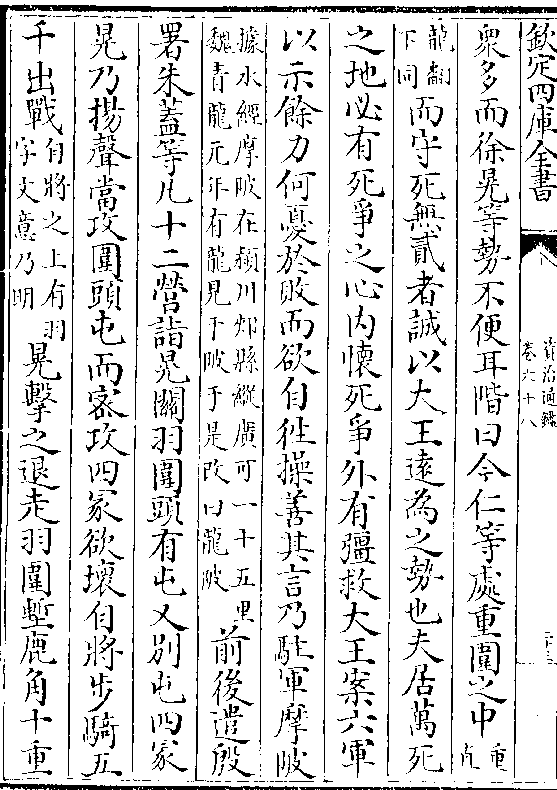 欽定四庫全書
資治通鑑
卷六十八
衆多而徐晃等勢不便耳階曰今仁等處重圍之中重直
龍翻下同而守死無貳者誠以大王遠為之勢也夫居萬死
之地必有死爭之心内懷死爭外有彊救大王案六軍
以示餘力何憂於敗而欲自徃操善其言乃駐軍摩陂
據水經摩陂在潁川郟縣縱廣可一十五里魏青龍元年有龍見于陂于是改曰龍陂前後遣殷
署朱蓋等凡十二營詣晃關羽圍頭有屯又别屯四冢
晃乃揚聲當攻圍頭屯而密攻四冢欲壞自將步騎五
千出戰自將之上有羽字文意乃明晃擊之退走羽圍塹鹿角十重